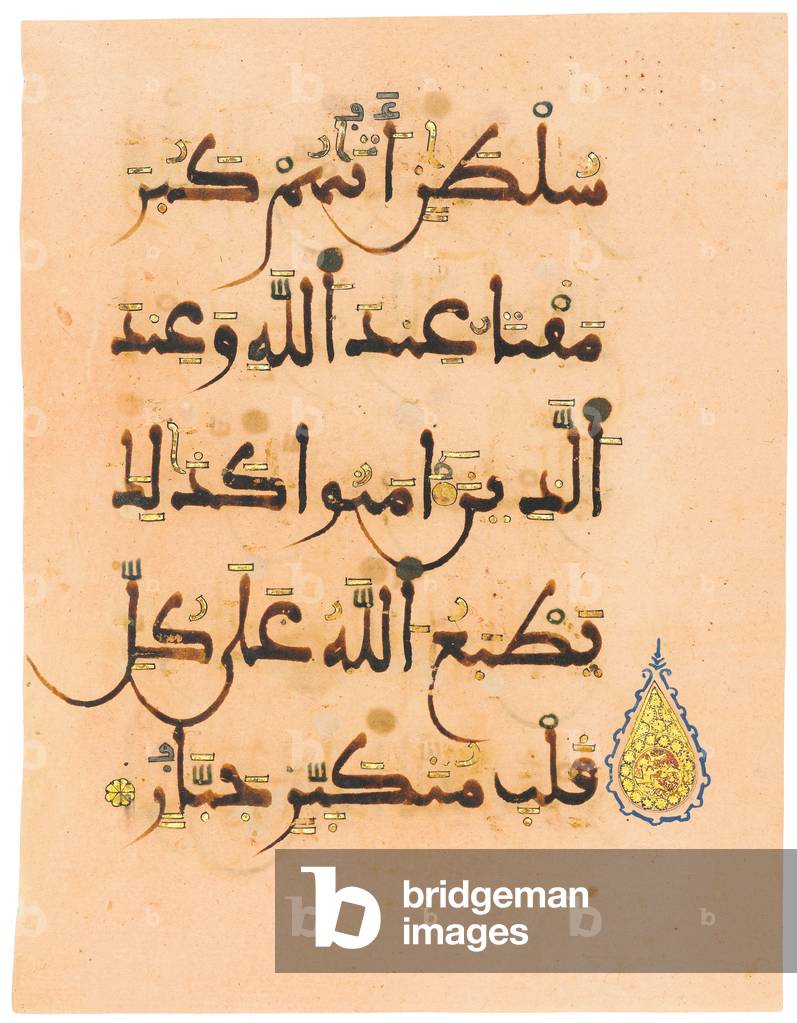 سُلْطَٰنٍ أَتَىٰهُمْ كَبُرَ
مَقْتًا عِندَ ٱللَّهِ وَعِندَ
ٱلَّذِينَ ءَامَنُوا كَذَٰلِكَ
يَطْبَعُ ٱللَّهُ عَلَىٰ كُلِّ
قَلْبِ مُتَكَبِّرٍ جَبَّارٍ
bridgeman
images